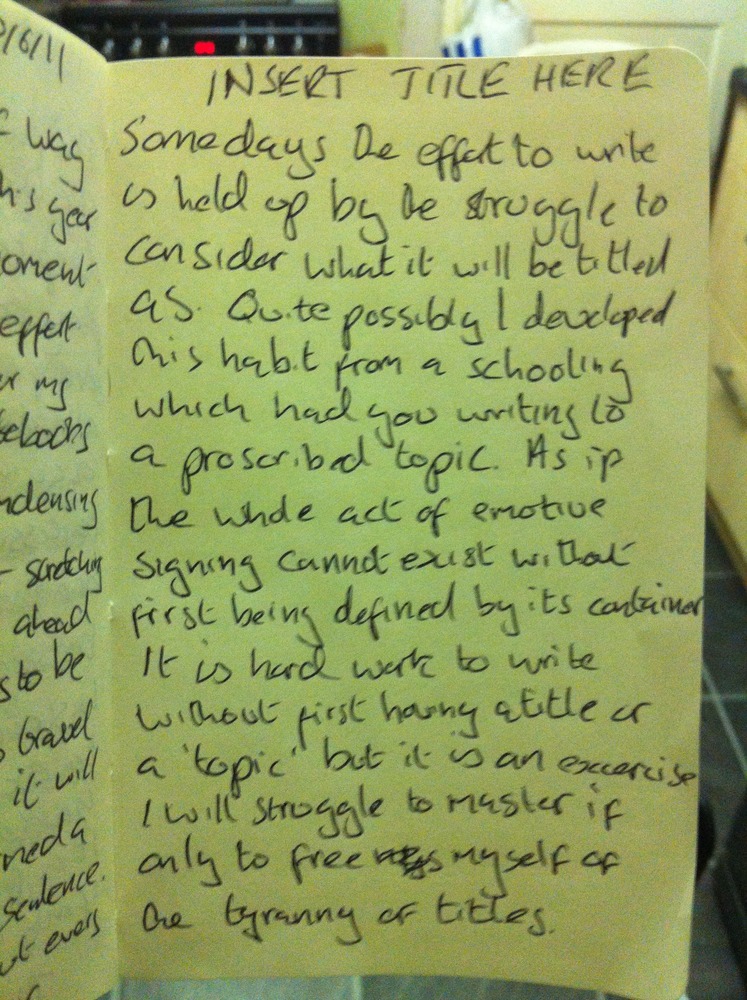 0/6/11
way
his year
oment
effort
er my
ebooks
ndensing
- scratching
ahead
s to be
travel
it will
ned a
sentence.
ut every
INSERT TITLE HERE
Somedays the effort to write
is held up by the struggle to
consider what it will be titled
as. Quite possibly I developed
this habit from a schooling
which had you writing to
a proscribed topic. As if
the whole act of emotive
signing cannot exist without
first being defined by its container
It is hard work to write
without first having a title or
a 'topic' but it is an excercise
I will struggle to master if
only to free myself of
the tyranny of titles.